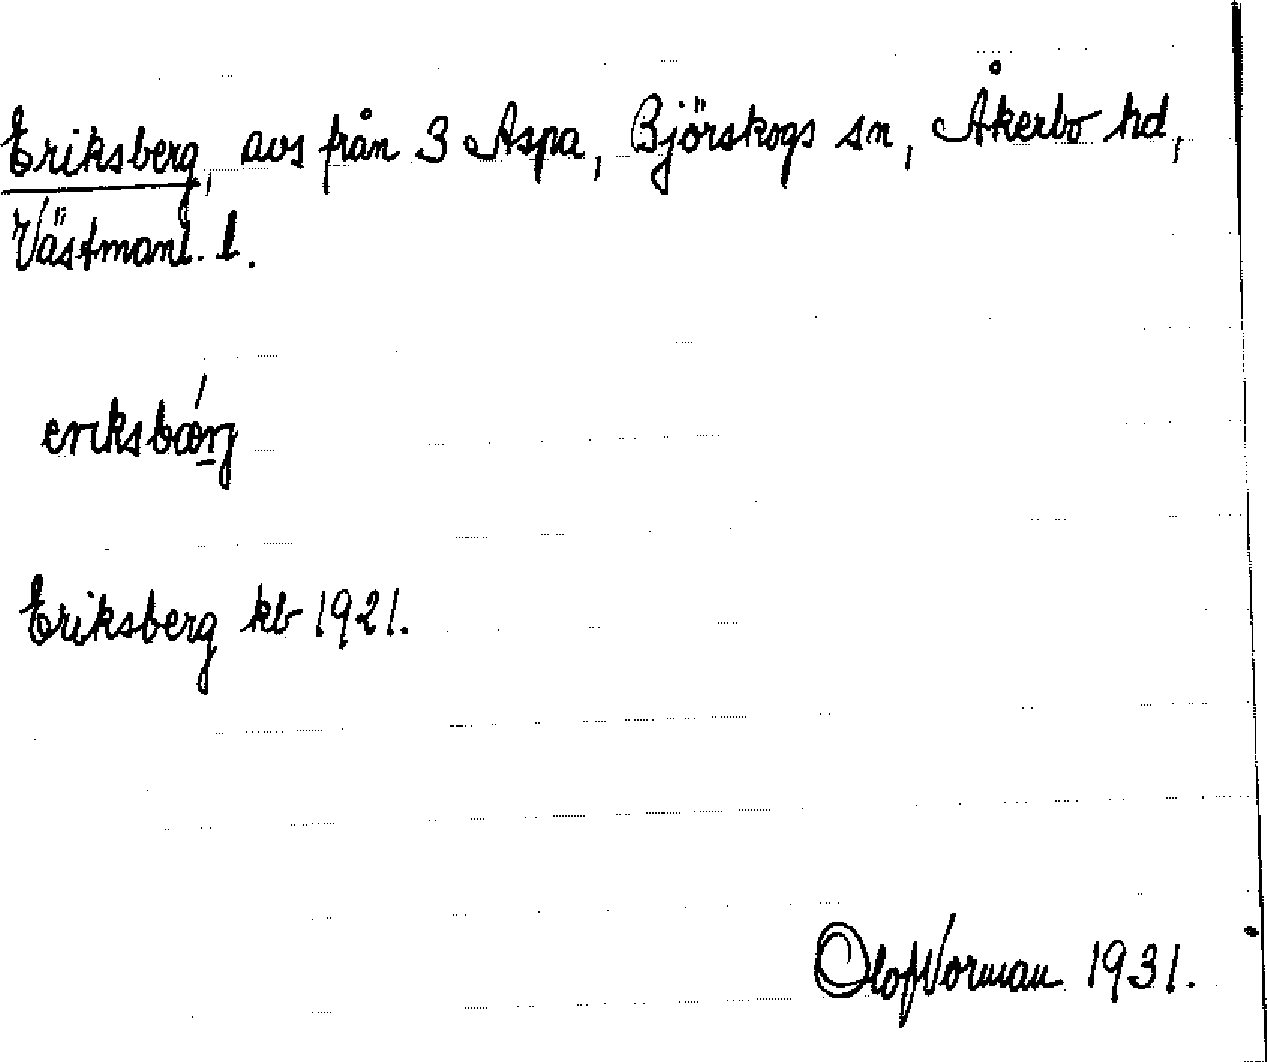 Eriksberg, avs från 3 Aspa, Björskogs sn, Åkerbo hd,
Västmanl. l.
eriksbærj
Eriksberg kb 1921.
Olof Norman 1931.